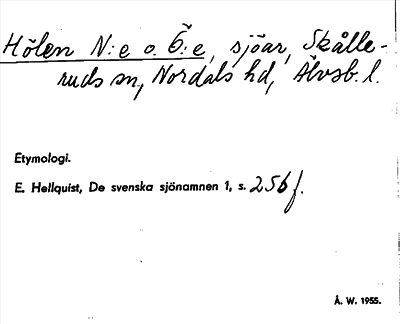 Hölen N:e o. Ö:e, sjöar, Skålle-
ruds sn, Nordals hd, Älvsb. l.
Etymologi.
E. Hellquist, De svenska sjönamnen 1, s. 256 f.
Å. W. 1955.